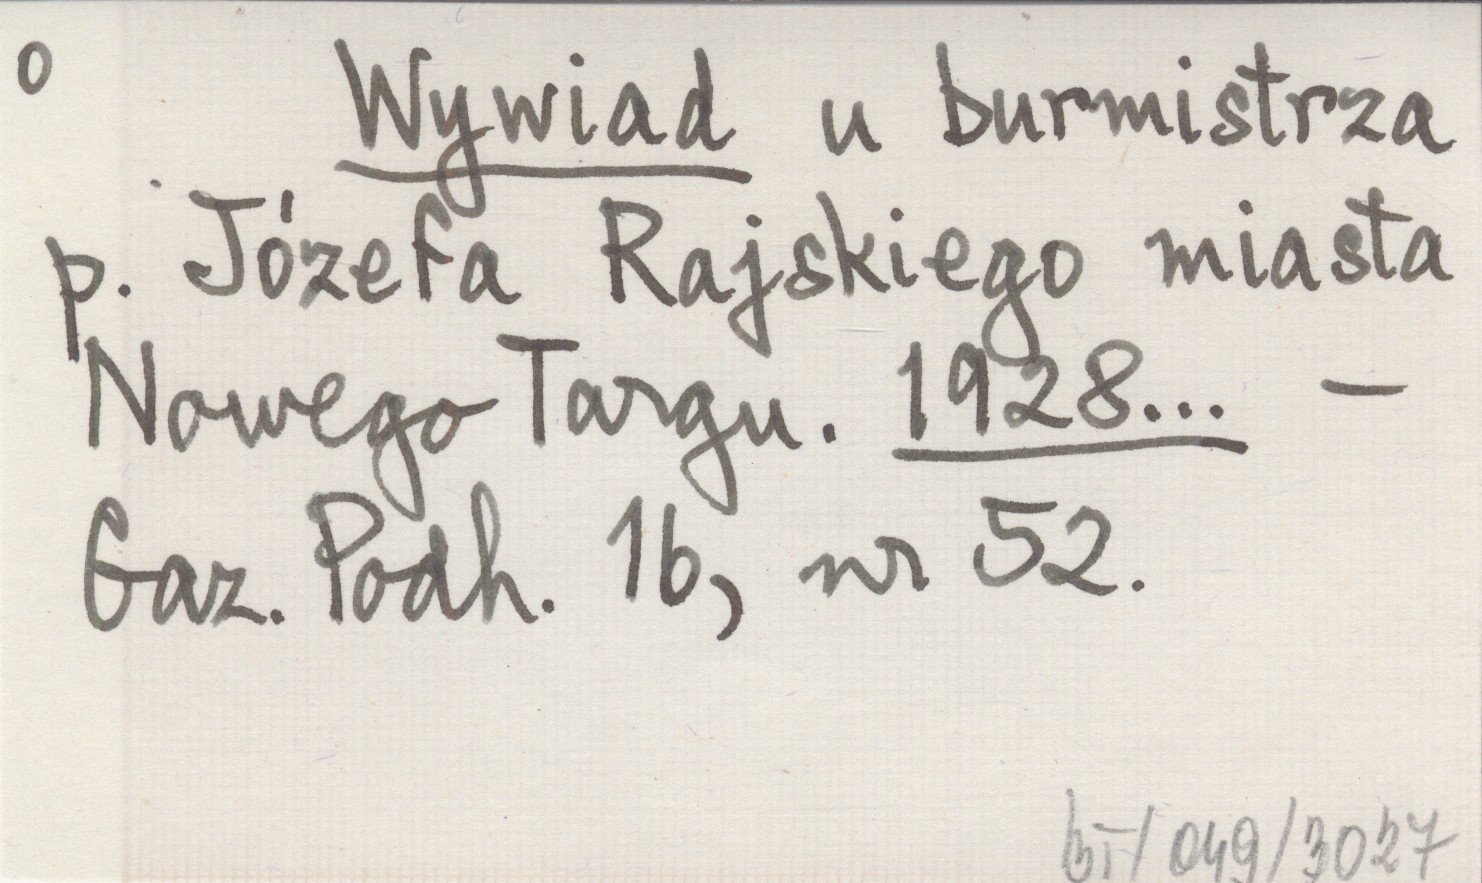 o Wywiad u burmistrza
p. Józefa Rajskiego miasta
Nowego Targu. 1928... –
Gaz. Podh. 16, nr 52.
bT/049/3027